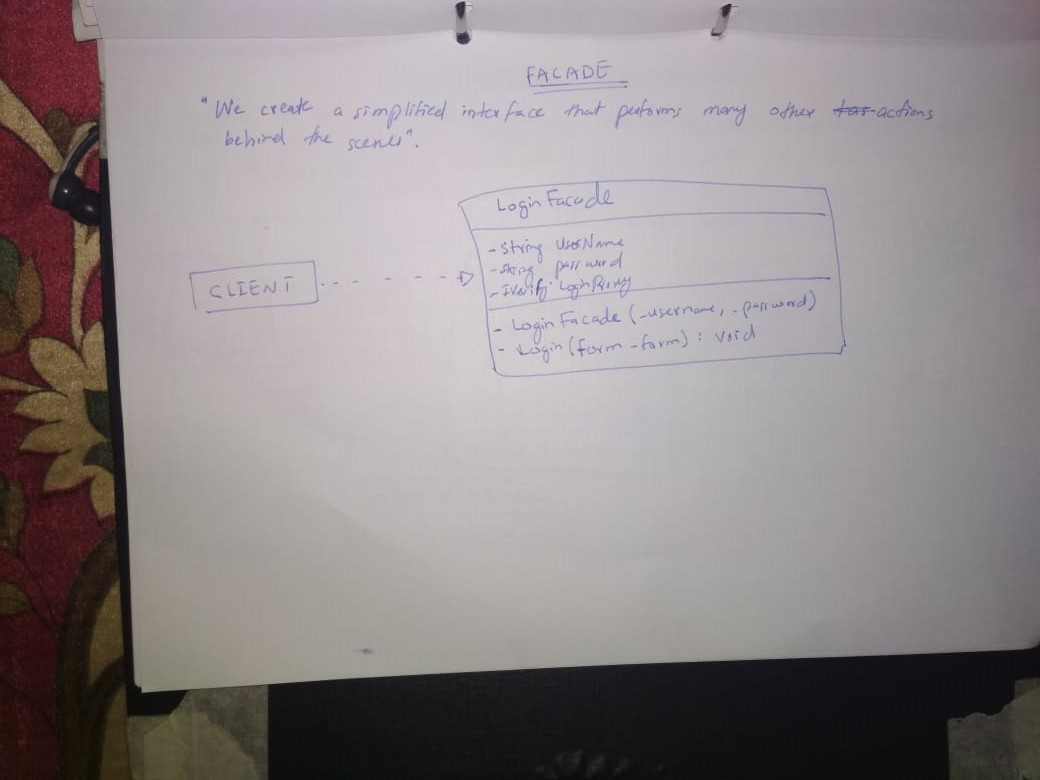 FACADE
"We create a simplified interface that performs many other tas actions
behind the scenes".
Login Facade
- String UserName
- String password
- IVerify LoginProxy
CLIENT
- Login Facade (-username, -password)
- Login (form -form) : void